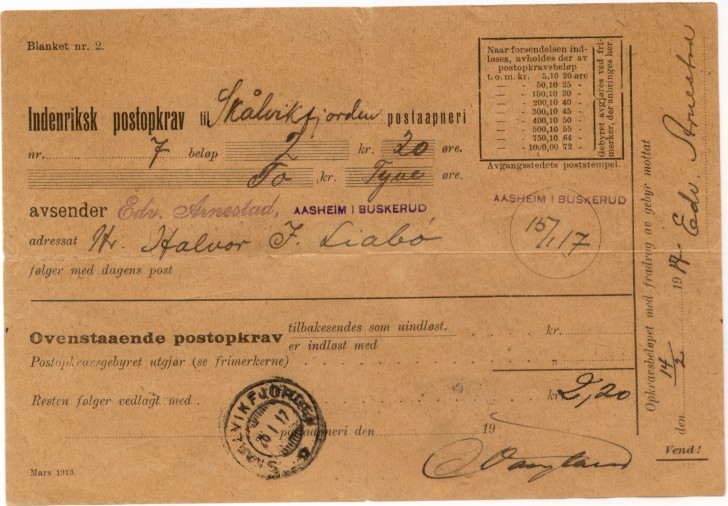 Blanket nr. 2.
Indenriksk postopkrav til Skålvikfjorden postaapneri
nr. 7 beløp 2 kr. 20 øre.
To kr. Tyve øre.
avsender Edv. Arnestad, AASHEIM I BUSKERUD
adressat Hr. Halvor J. Liabö
følger med dagens post
Naar forsendelsen ind-
løses, avholdes der av
postopkravsbeløp
t. o. m. kr. 5,10 20 øre
50,10 25 -
100,10 30 -
200,10 40 -
300,10 45 -
400,10 50 -
500,10 55 -
750,10 64 -
1000,00 72 -
Gebyret avgjøres ved fri-
merker, der anbringes her.
Avgangsstedets poststempel.
AASHEIM I BUSKERUD
15/1 17
Ovenstaaende postopkrav tilbakesendes som uindløst.
er indløst med kr.
Postopkravsgebyret utgjør (se frimerkerne) " "
Resten følger vedlagt med kr. 2,20
SKAALVIKFJORDEN
20 I 17
postaapneri den 19
Mars 1913.
Opkravsbeløpet med fradrag av gebyr mottat
den 14/2 1917 Edv. Arnestad
Vend!